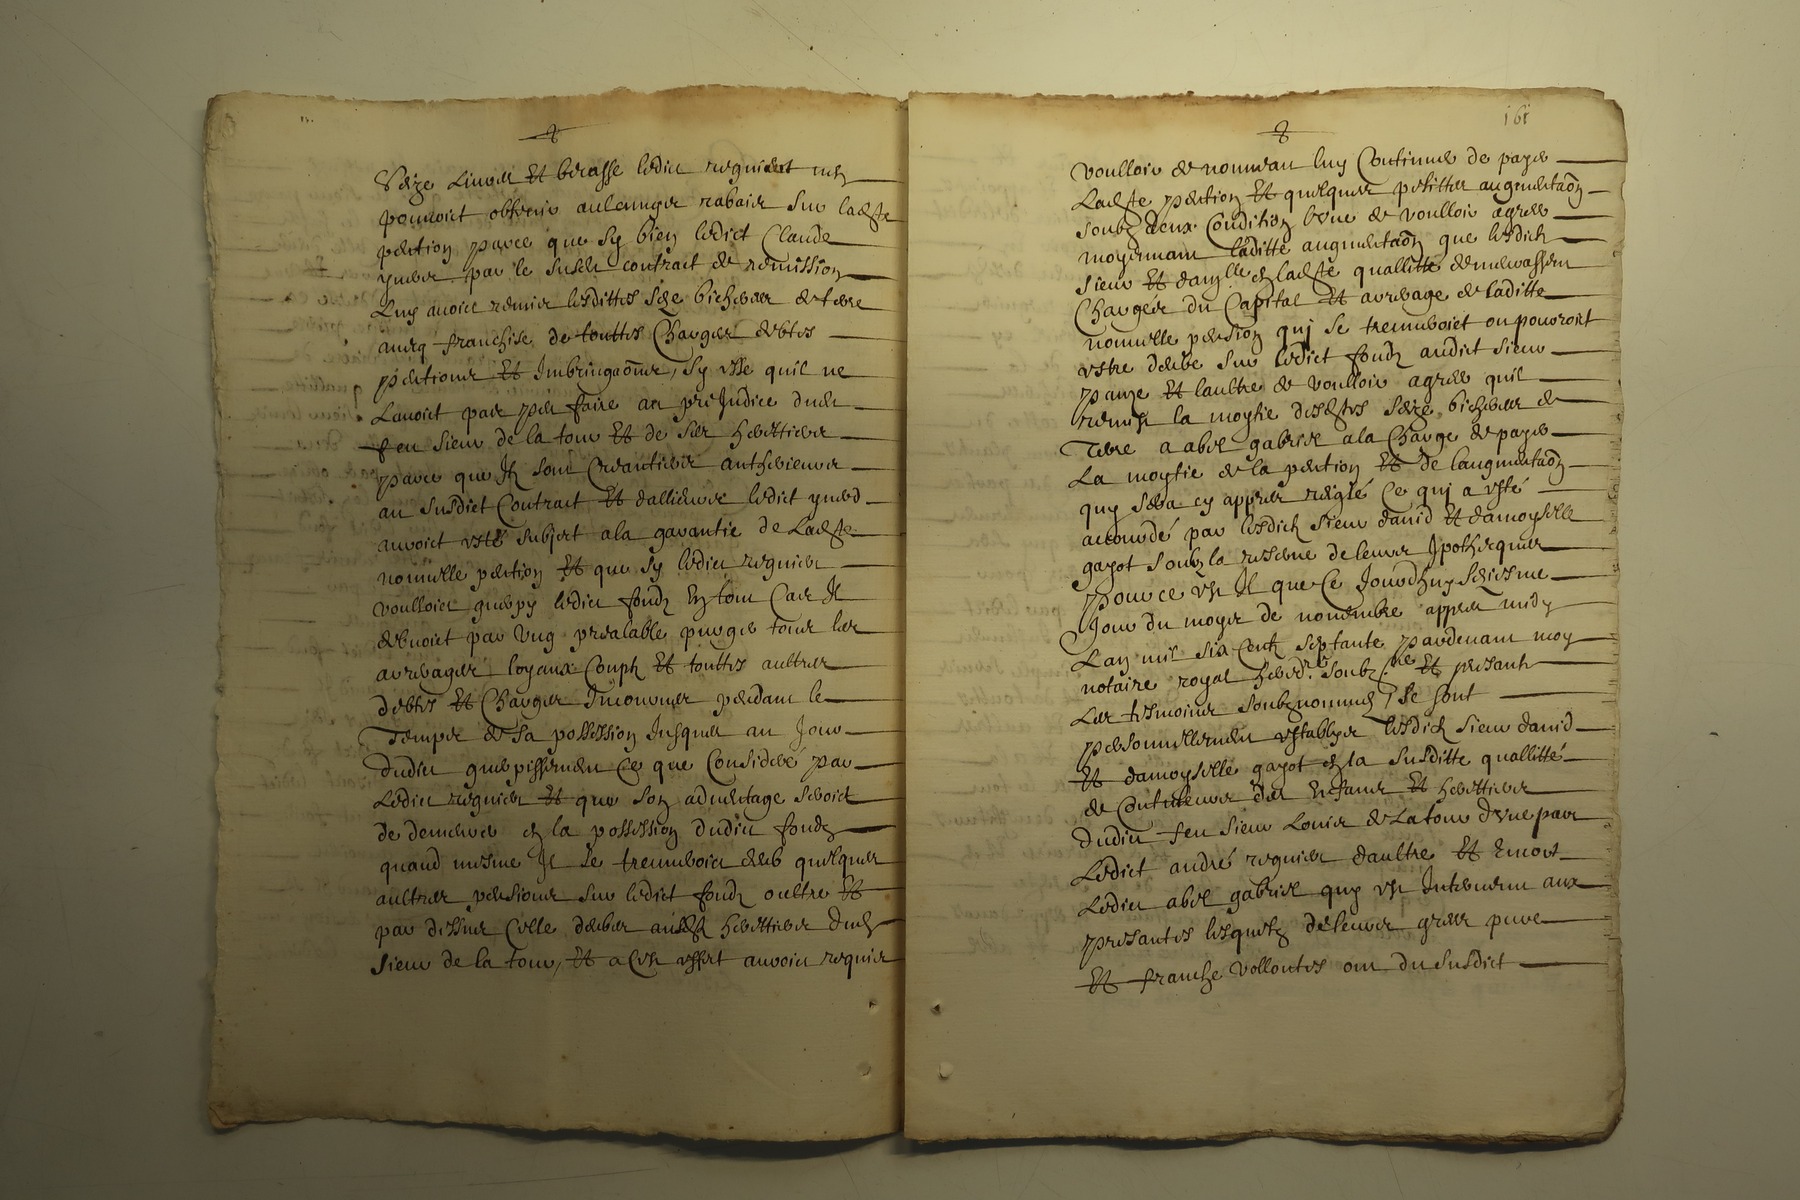 Seize Livres Et berasse ledict regnier ne
pouvoict obtenir aulcungz rabaiz sur ladte
pention parce que sy bien ledict Claude
par le susdt contract de remission
Luy avoict remis lesdittes seze bicherees de terre
aveq franchise de touttes Charges debtes
pentions Et Imbringaons, Sy esse quil ne
Lavoict pas peu faire au preJudice dudt
feu sieur de la tour Et de ses herettiers
parce que Jlz sont Creantiers antherieurs
au susdict Contract Et dallieurs ledict ymer
auroict esté subject a la garantie de Ladte
nouvelle pention Et que sy ledict regnier
voulloict guerpy ledict fondz Car Jl
debvoict par ung prealable purger tous les
arrerages loyaux Coupz Et touttes aultres
debtes Et Charges Encourues pendant le
Temps de sa possession Jusques au Jour
dudict guerpissement Ce que Consideré par
Ledict regnier Et que son adventage seroict
de demeurer en la possession dudict fondz
quand mesme Jl se treuveroict debv quelques
aultres pensions sur ledict fondz oultre Et
par dessus Celle deube ausdt herettiers dudt
sieur de la tour, Et a Cest effect auroict requis
161
voulloir de nouveau luy Continuer de payer
Ladte pention Et quelques petittes augmentaon
soubz deux Condition lune de voulloir agreer
moyennant laditte augmentaon que lesdictz
sieur Et damlle en ladte quallitte demeurassent
Chargés du Capital Et arrerage de laditte
nouvelle pension qui se treuveroict ou pourroict
estre deube sur ledict fondz audict sieur
Et laultre de voulloir agreer quil
remist la moytie desdtes seize bicherees de
Terre a abel gabriel a la Charge de payer
La moytie de la pention Et de laugmentaon
quy sera cy appres reiglé Ce qui a esté
accordé par lesdictz sieur david Et damoyselle
gayot soubz la reserve de leurs Jpotheques
Pour ce est Jl que Ce Jourdhuy seiziesme
Jour du moys de novembre appres midy
Lan mil six Centz septante pardevant moy
notaire royal hered.re soubz.né Et presantz
Les tesmoins soubznommes, Se sont
personnellement establys lesdictz sieur david
Et damoyselle gayot en la susditte quallitté
de Conteteurs des Enfans Et herettiers
dudict feu sieur Louis de Latour dune part
Ledict andré regnier daultre Et Encor
Ledict abel gabriel quy est Intervenu aux
presantes lesquelz de leurs grees pure
Et franche vollontes ont du susdict